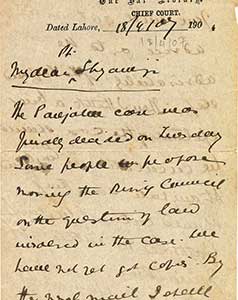 The Bar Library
CHIEF COURT.
Dated Lahore, 18/4/07 190
My dear Shyamji
The Punjabee case was
finally decided on Tuesday
Some people propose
moving the Privy Council
on the question of law
involved in the case. We
have not yet got copies. By
the next mail I shall